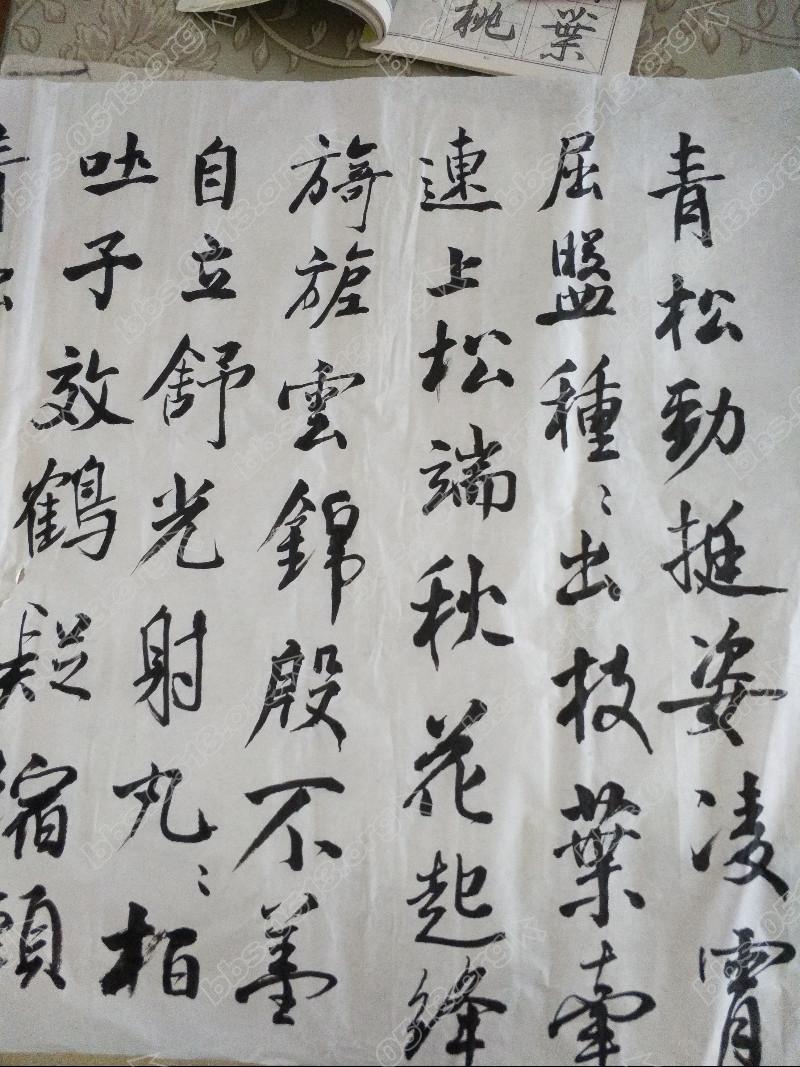 桃 葉
青松勁挺姿凌霄
屈種〻出枝葉牽
連上松端秋花起絳
旖旎雲錦殷不羞
自立舒光射丸〻柏
吐子效鶴疑縮
青松
bbs.0513.org